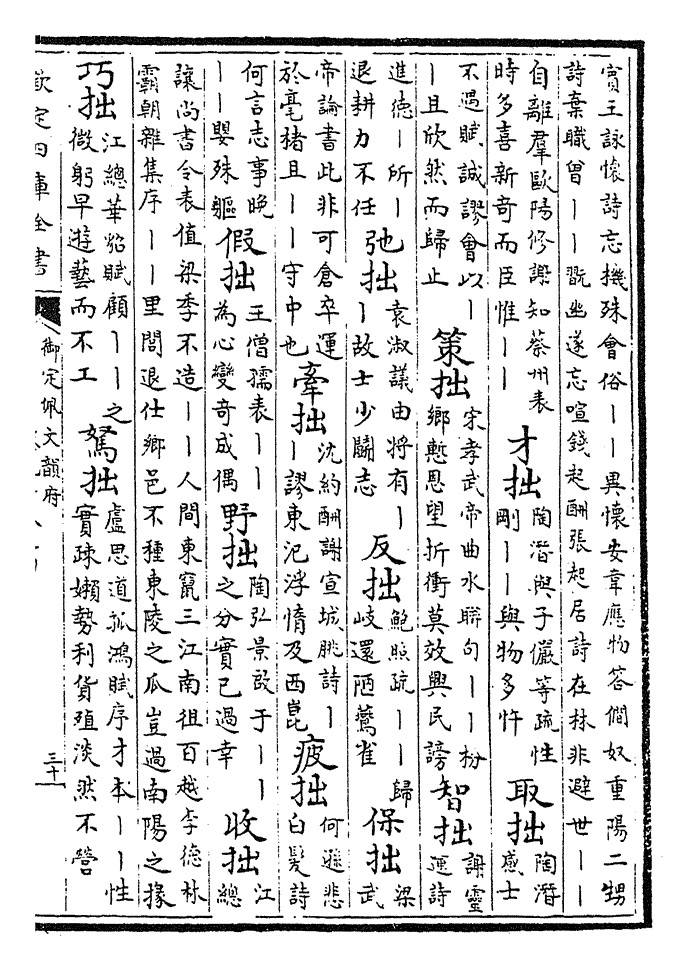 賓王詠懷詩忘機殊會俗丨丨異懷安韋應物答僩奴重陽二甥
詩棄職曾丨丨翫幽遂忘喧錢起酬張起居詩在林非避世丨丨
自離羣歐陽修謝知蔡州表
時多喜新奇而臣惟丨丨
才拙
陶潛與子儼等疏性
剛丨丨與物多忤
取拙
陶潛
感士
不遇賦誠謬會以丨
丨且欣然而歸止
策拙
宋孝武帝曲水聯句丨丨枌
鄉慙恩望折衝莫效興民謗
智拙
謝靈
運詩
進德丨所丨
退耕力不任
弛拙
袁淑議由將有丨
丨故士少鬭志
反拙
鮑照疏丨丨歸
岐還陋鷰雀
保拙
梁
武
帝論書此非可倉卒運
於毫猪且丨丨守中也
牽拙
沈約酬謝宣城朓詩丨
丨謬東汜浮惰及西崑
疲拙
何遜悲
白髮詩
何言志事晚
丨丨嬰殊軀
假拙
王僧孺表丨丨
為心變奇成偶
野拙
陶弘景啟于丨丨
之分實已過幸
收拙
江
總
讓尚書令表值梁季不造丨丨人間東竄三江南徂百越李德林
霸朝雜集序丨丨里閭退仕鄉邑不種東陵之瓜豈過南陽之掾
巧拙
江總華貂賦顧丨丨之
微躬早遊藝而不工
駑拙
盧思道孤鴻賦序才本丨丨性
實疎嬾勢利貨殖淡然不營
欽定四庫全書
御定佩文韻府
三十